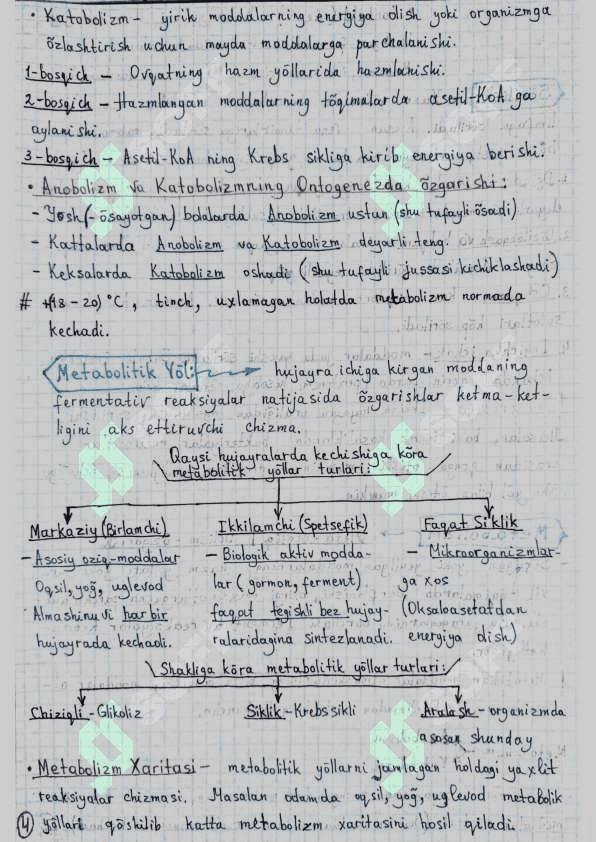 • Katobolizm - yirik moddalarning energiya olish yoki organizmga
õzlashtirish uchun mayda moddalarga parchalanishi.
1-bosqich - Ovqatning hazm yõllarida hazmlanishi.
2-bosqich - Hazmlangan moddalarning tõqimalarda asetil-KoA ga
aylanishi.
3-bosqich - Asetil-KoA ning Krebs sikliga kirib energiya berishi.
• Anobolizm va Katobolizmning Ontogenezda õzgarishi:
- Yosh (-õsayotgan) bolalarda Anobolizm ustun (shu tufayli õsadi)
- Kattalarda Anobolizm va Katobolizm deyarli teng.
- Keksalarda Katobolizm oshadi (shu tufayli jussasi kichiklashadi)
# +(18-20) °C, tinch, uxlamagan holatda metabolizm normada
kechadi.
Metabolitik Yõl: hujayra ichiga kirgan moddaning
fermentativ reaksiyalar natijasida õzgarishlar ketma-ket-
ligini aks ettiruvchi chizma.
Qaysi hujayralarda kechishiga kõra
metabolitik yõllar turlari:
Markaziy (Birlamchi) Ikkilamchi (Spetsefik) Faqat Siklik
- Asosiy oziq-moddalar - Biologik aktiv modda- - Mikroorganizmlar-
Oqsil, yoğ, uglevod lar (gormon, ferment) ga xos
Almashinuvi har bir faqat tegishli bez hujay- (Oksaloasetatdan
hujayrada kechadi. ralaridagina sintezlanadi. energiya olish)
Shakliga kõra metabolitik yõllar turlari:
Chiziqli - Glikoliz Siklik - Krebs sikli Aralash - organizmda
asosan shunday
• Metabolizm Xaritasi - metabolitik yõllarni jamlagan holdagi yaxlit
reaksiyalar chizmasi. Masalan odamda oqsil, yoğ, uglevod metabolik
4 yõllari qõshilib katta metabolizm xaritasini hosil qiladi.